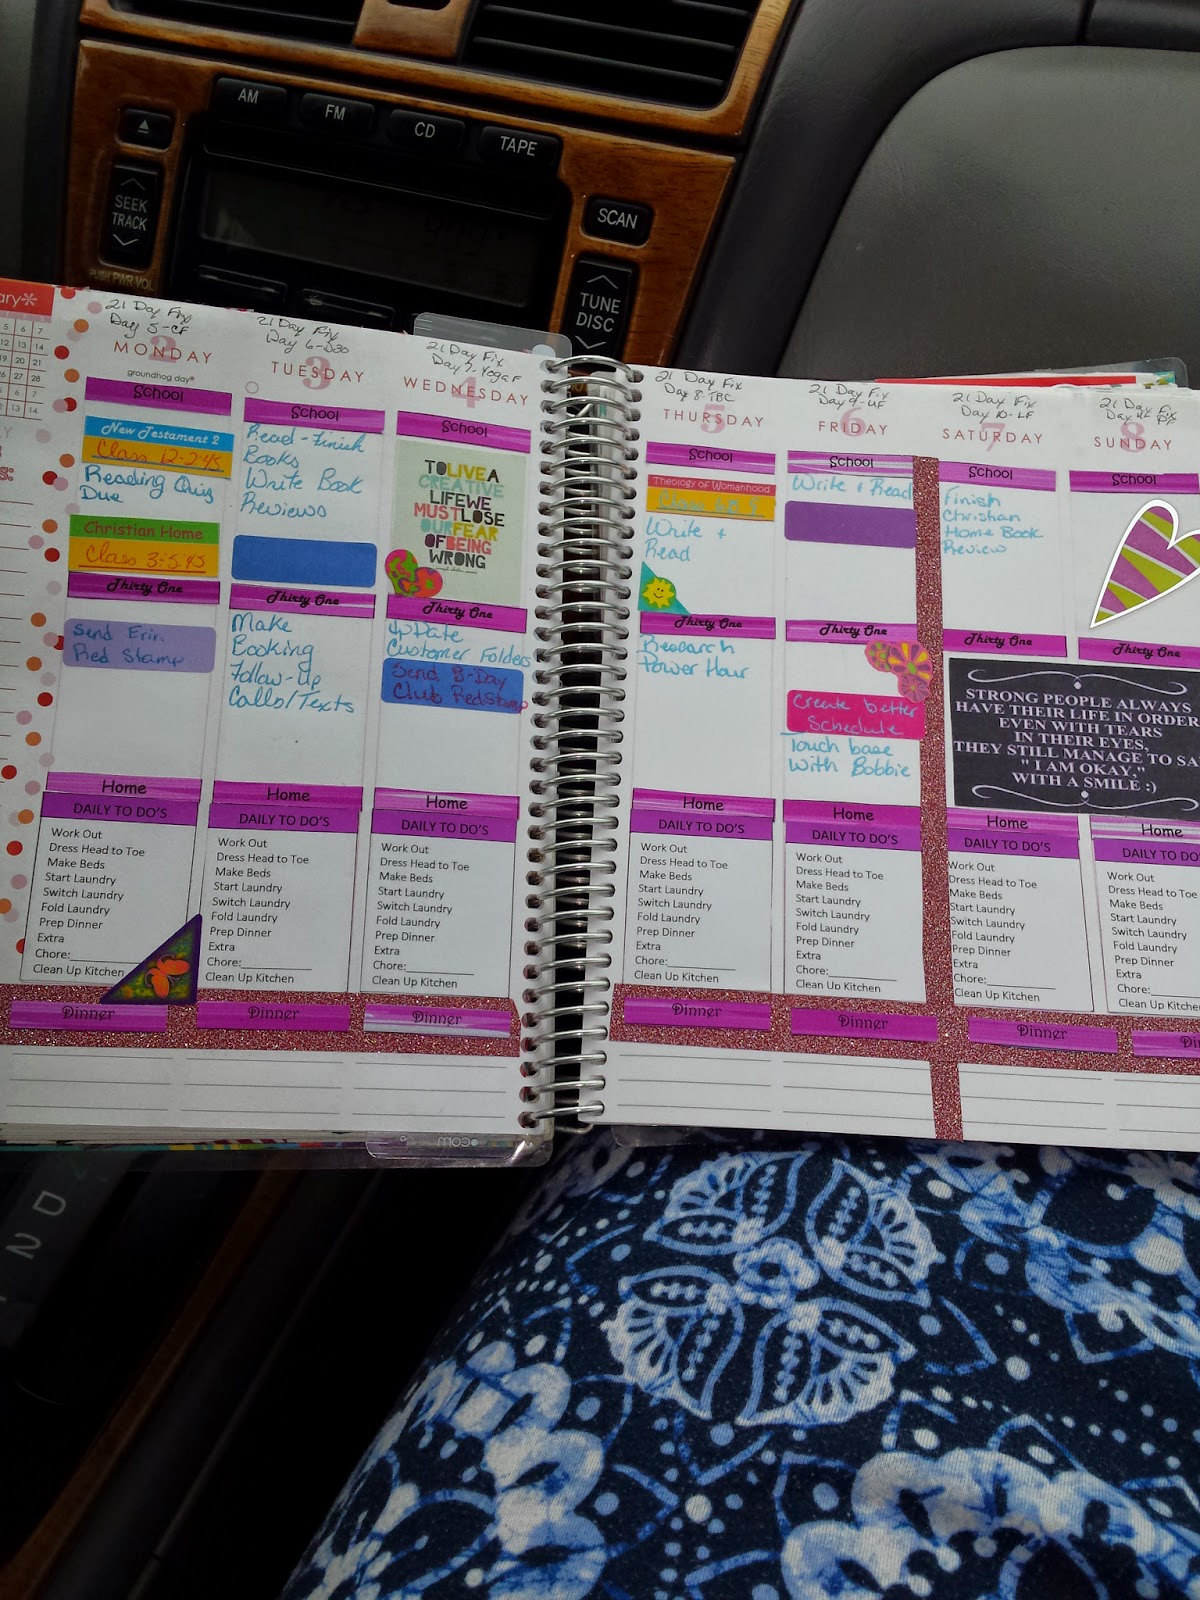 AM
FM
CD
TAPE
SEEK
TRACK
PUSH PWR·VOL
SCAN
TUNE
DISC
ary*
5 6 7
12 13 14
19 20 21
26 27 28
21 Day Fix
Day 5-CF
2
MONDAY
groundhog day®
School
New Testament 2
Class 12-2:45
Reading Quiz
Due
Christian Home
Class 3-5:45
Thirty One
Send Erin
Red Stamp
Home
DAILY TO DO'S
Work Out
Dress Head to Toe
Make Beds
Start Laundry
Switch Laundry
Fold Laundry
Prep Dinner
Extra
Chore:
Clean Up Kitchen
Dinner
21 Day Fix
Day 6-D30
3
TUESDAY
School
Read - Finish
Books
Write Book
Reviews
Thirty One
Make
Booking
Follow-Up
Calls/Texts
Home
DAILY TO DO'S
Work Out
Dress Head to Toe
Make Beds
Start Laundry
Switch Laundry
Fold Laundry
Prep Dinner
Extra
Chore:
Clean Up Kitchen
Dinner
21 Day Fix
Day 7-Yoga F
4
WEDNESDAY
School
TO LIVE A
CREATIVE
LIFE WE
MUST LOSE
OUR FEAR
OF BEING
WRONG
Thirty One
UpDate
Customer Folders
Send B-Day
Club Red Stamp
Home
DAILY TO DO'S
Work Out
Dress Head to Toe
Make Beds
Start Laundry
Switch Laundry
Fold Laundry
Prep Dinner
Extra
Chore:
Clean Up Kitchen
Dinner
21 Day Fix
Day 8-TBC
5
THURSDAY
School
Theology of Womanhood
Class
Write +
Read
Thirty One
Research
Power Hour
Home
DAILY TO DO'S
Work Out
Dress Head to Toe
Make Beds
Start Laundry
Switch Laundry
Fold Laundry
Prep Dinner
Extra
Chore:
Clean Up Kitchen
Dinner
21 Day Fix
Day 9-UF
6
FRIDAY
School
Write + Read
Thirty One
Create better
Schedule
Touch base
With Bobbie
Home
DAILY TO DO'S
Work Out
Dress Head to Toe
Make Beds
Start Laundry
Switch Laundry
Fold Laundry
Prep Dinner
Extra
Chore:
Clean Up Kitchen
Dinner
21 Day Fix
Day 10-LF
7
SATURDAY
School
Finish
Christian
Home Book
Review
Thirty One
STRONG PEOPLE ALWAYS
HAVE THEIR LIFE IN ORDER
EVEN WITH TEARS
IN THEIR EYES,
THEY STILL MANAGE TO SA
" I AM OKAY,"
WITH A SMILE :)
Home
DAILY TO DO'S
Work Out
Dress Head to Toe
Make Beds
Start Laundry
Switch Laundry
Fold Laundry
Prep Dinner
Extra
Chore:
Clean Up Kitchen
Dinner
21 Day Fix
Day
8
SUNDAY
School
Thirty One
Home
DAILY TO DO
Work Out
Dress Head to Toe
Make Beds
Start Laundry
Switch Laundry
Fold Laundry
Prep Dinner
Extra
Chore:
Clean Up Kitchen
Din
.com
D
2